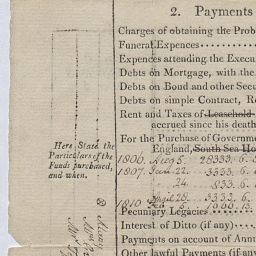 2. Payments
Charges of obtaining the Prob
Funeral Expences
Expences attending the Execu
Debts on Mortgage, with the
Debts on Bond and other Secu
Debts on simple Contract, R
Rent and Taxes of Leasehold
accrued since his death
For the Purchase of Governme
England, South Sea Ho
Here State the
Particulars of the
Funds purchased,
and when.
1806. Aug 5. 28333. 6.
1807. Jan 22. 3333. 6.
24. 833. 6.
1810 28. 3332. 6.
Pecuniary Legacies
Interest of Ditto (if any)
Payments on account of Annu
Other lawful Payments (if any